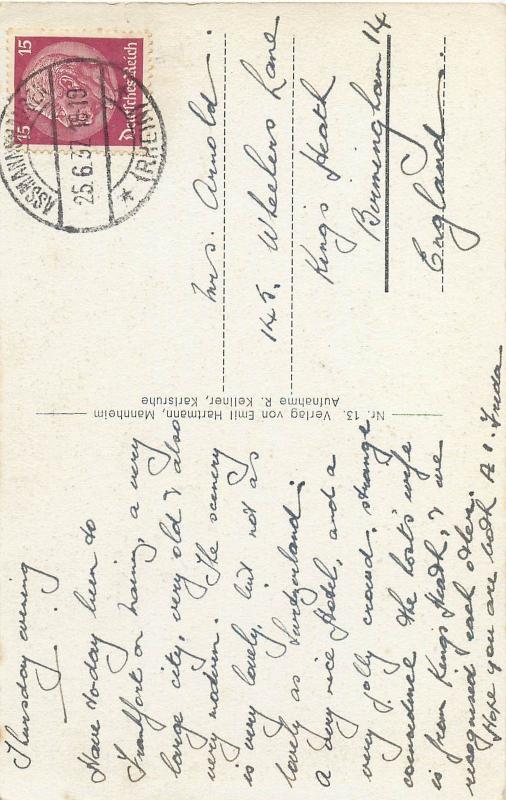 Thursday evening
Have today been to
Frankfort on Maing, a very
large city, very old & also
very modern. The scenery
is very lovely, but not as
lovely as Switzerland.
a very nice Hotel, and a
very jolly crowd, strange
coincidence the host's wife
is from Kings Heath, & we
recognised each other.
Hope you are both A 1. Freda
Nr. 13. Verlag von Emil Hartmann, Mannheim
Aufnahme R. Kellner, Karlsruhe
15 Deutsches Reich 15
ASSMANNSHAUSEN
25.6.37.18-19
* (RHEIN)
Mrs. Arnold.
145. Wheelers Lane
Kings Heath
Birmingham 14
England.